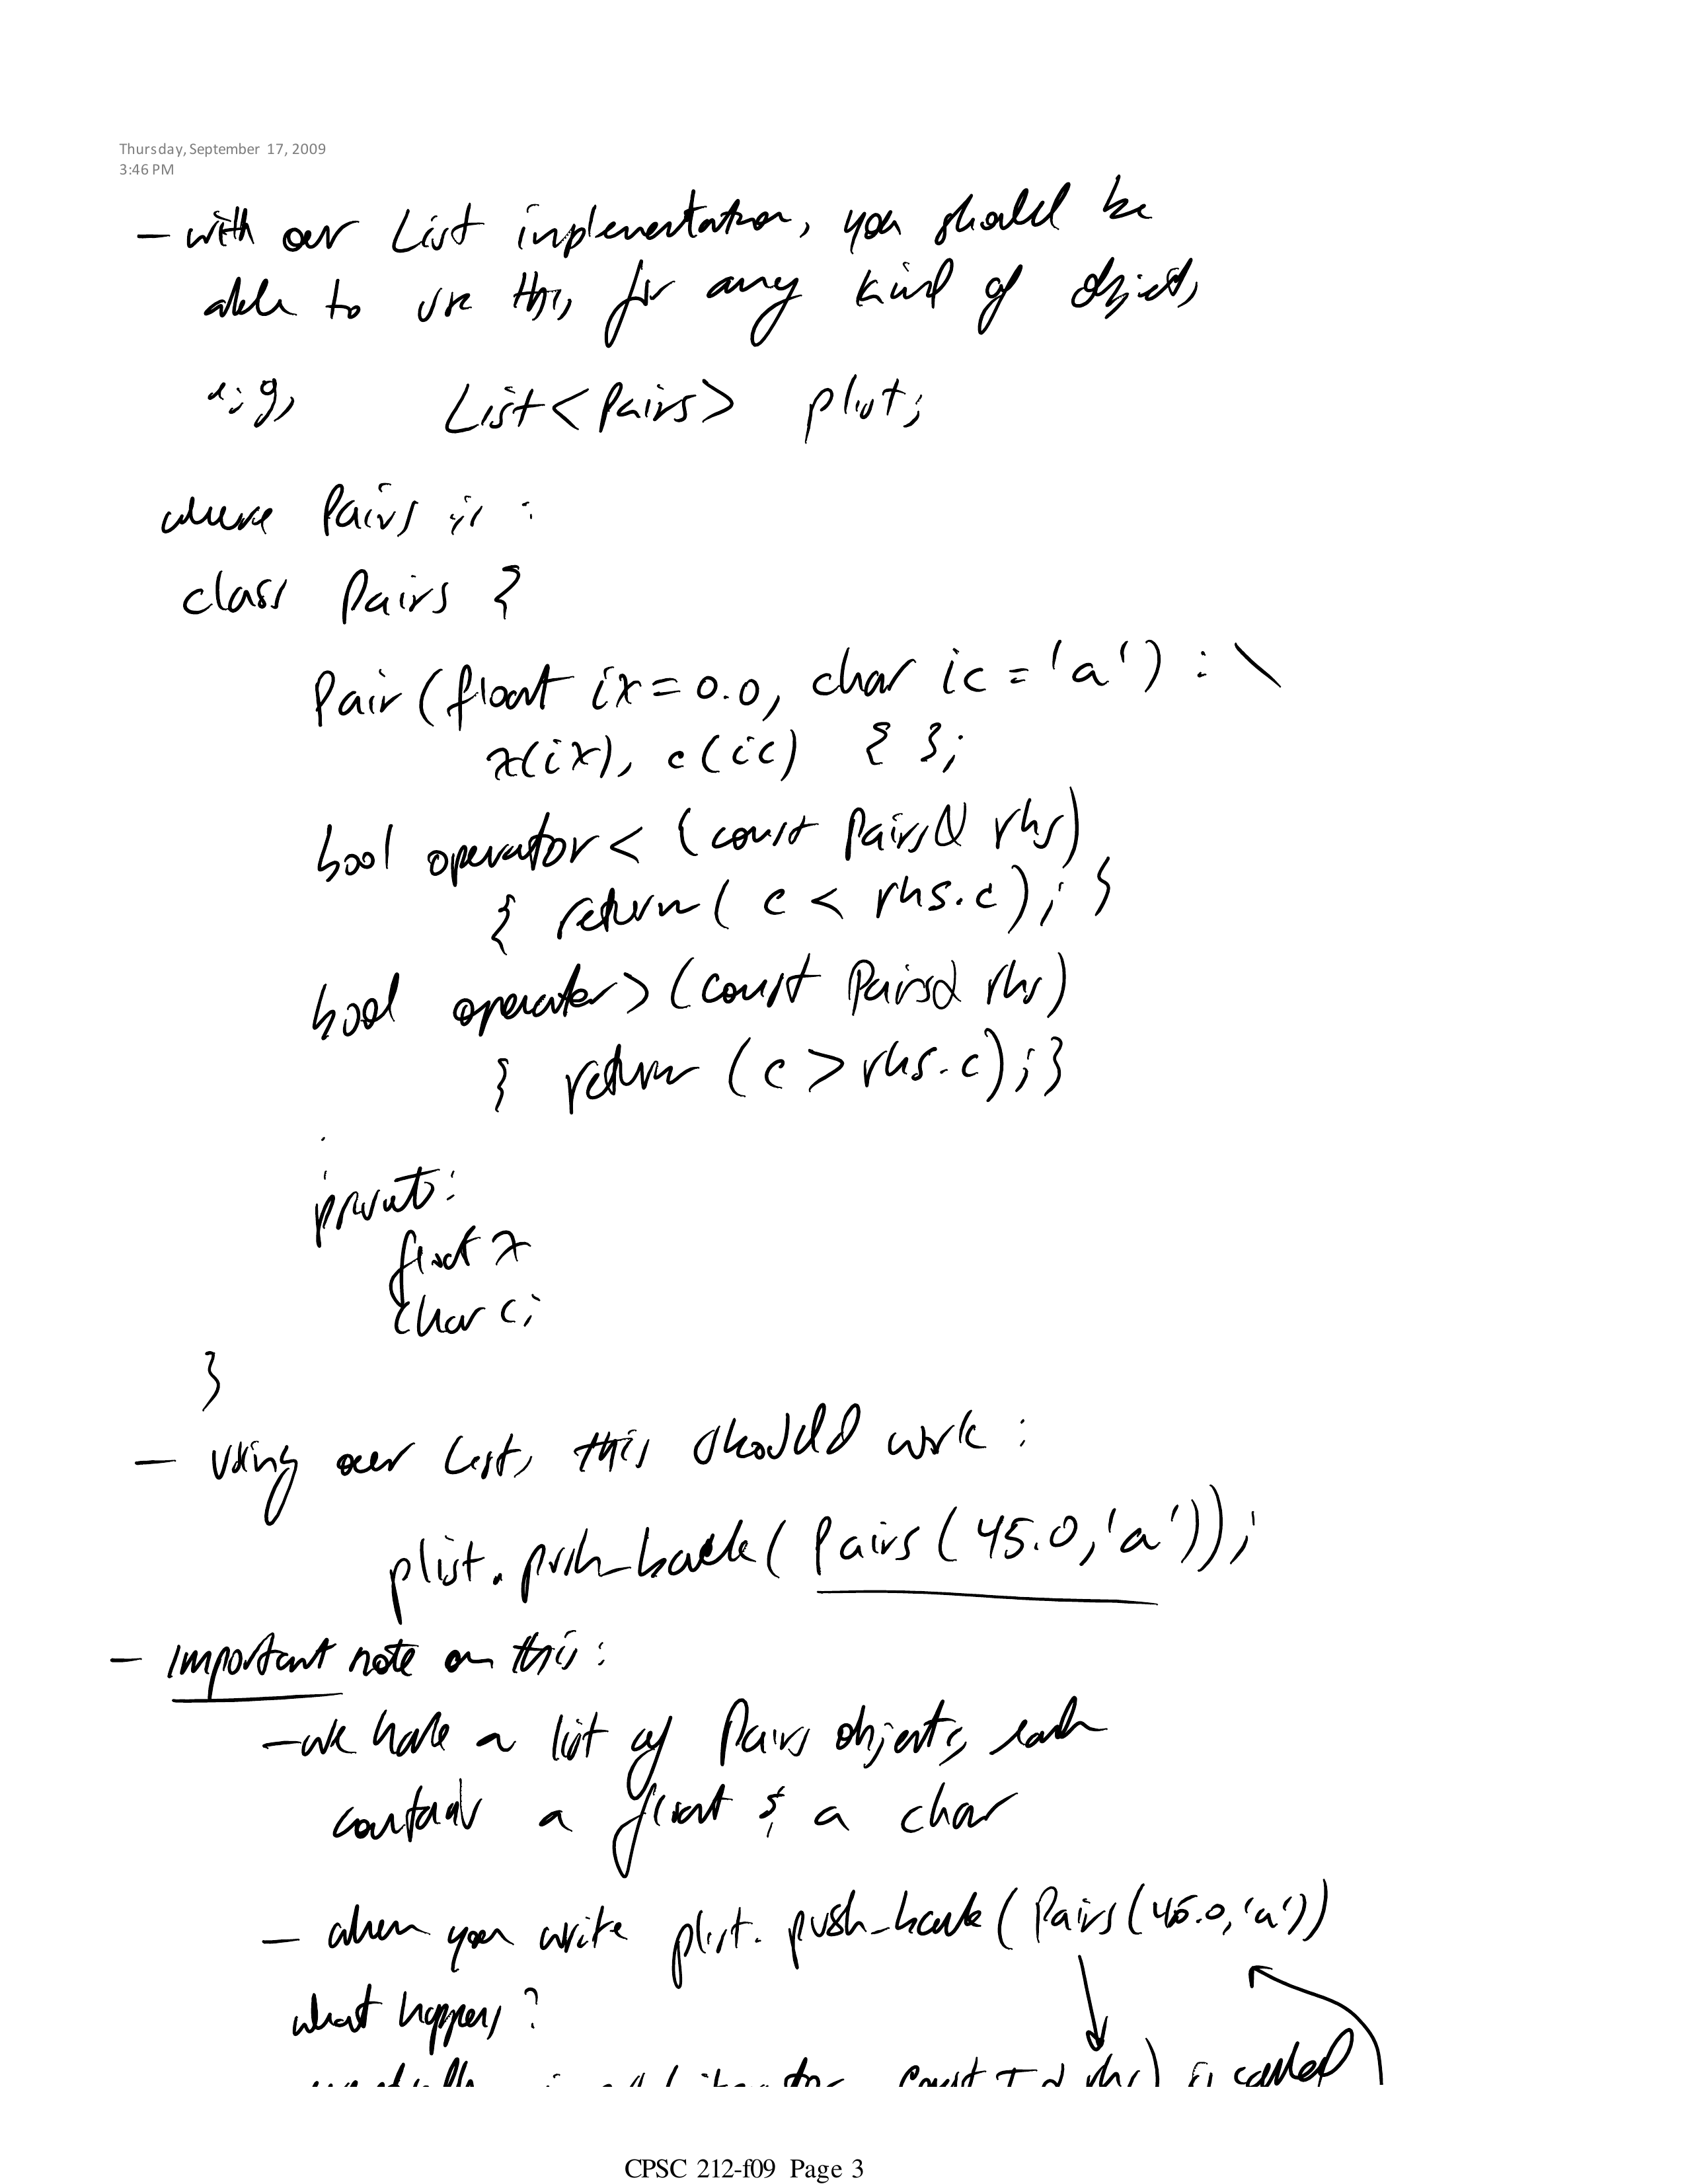 Thursday, September 17, 2009
3:46 PM
- with our List implementation, you should be
able to use this for any kind of objects
e.g, List<Pairs> plist;
where Pairs is :
class Pairs {
Pair (float ix = 0.0, char ic = 'a') : \
x(ix), c(ic) { };
bool operator < (const Pairs& rhs)
{ return ( c < rhs.c); }
bool operator > (const Pairs& rhs)
{ return (c > rhs.c); }
.
.
private:
float x
char c;
}
- Using our List, this should work :
plist.push_back( Pairs (45.0, 'a'));
- Important note on this :
- we have a list of Pairs objects, each
contains a float & a char
- when you write plist. push_back (Pairs (45.0, 'a'))
what happens ?
const T & rhs) is called
CPSC 212-f09 Page 3